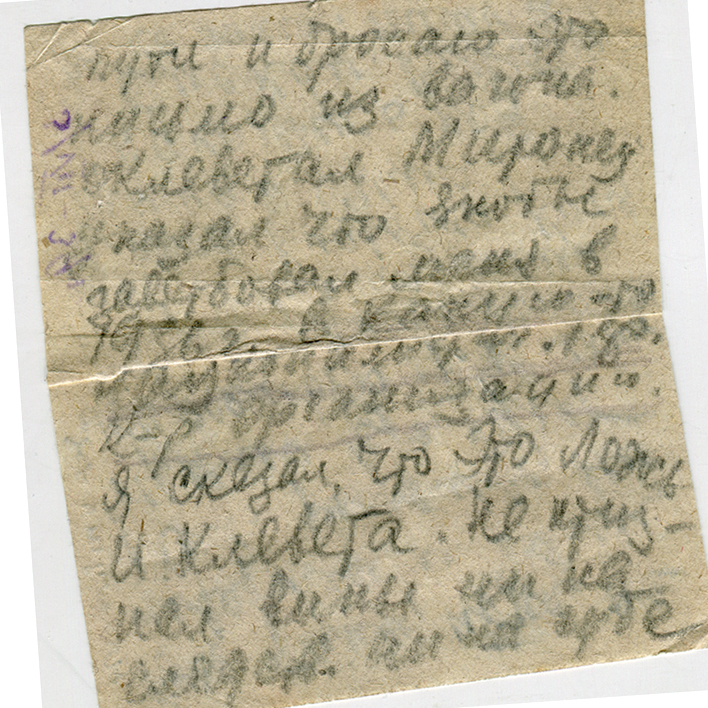 пути и бросаю это
письмо из вагона.
оклеветал Миронец
сказал что якобы
завербовал меня в
1936 г в какую-то
к-р организации.
я сказал, что это ложь
и клевета. не приз-
нал вины ни на
следств. ни на суде